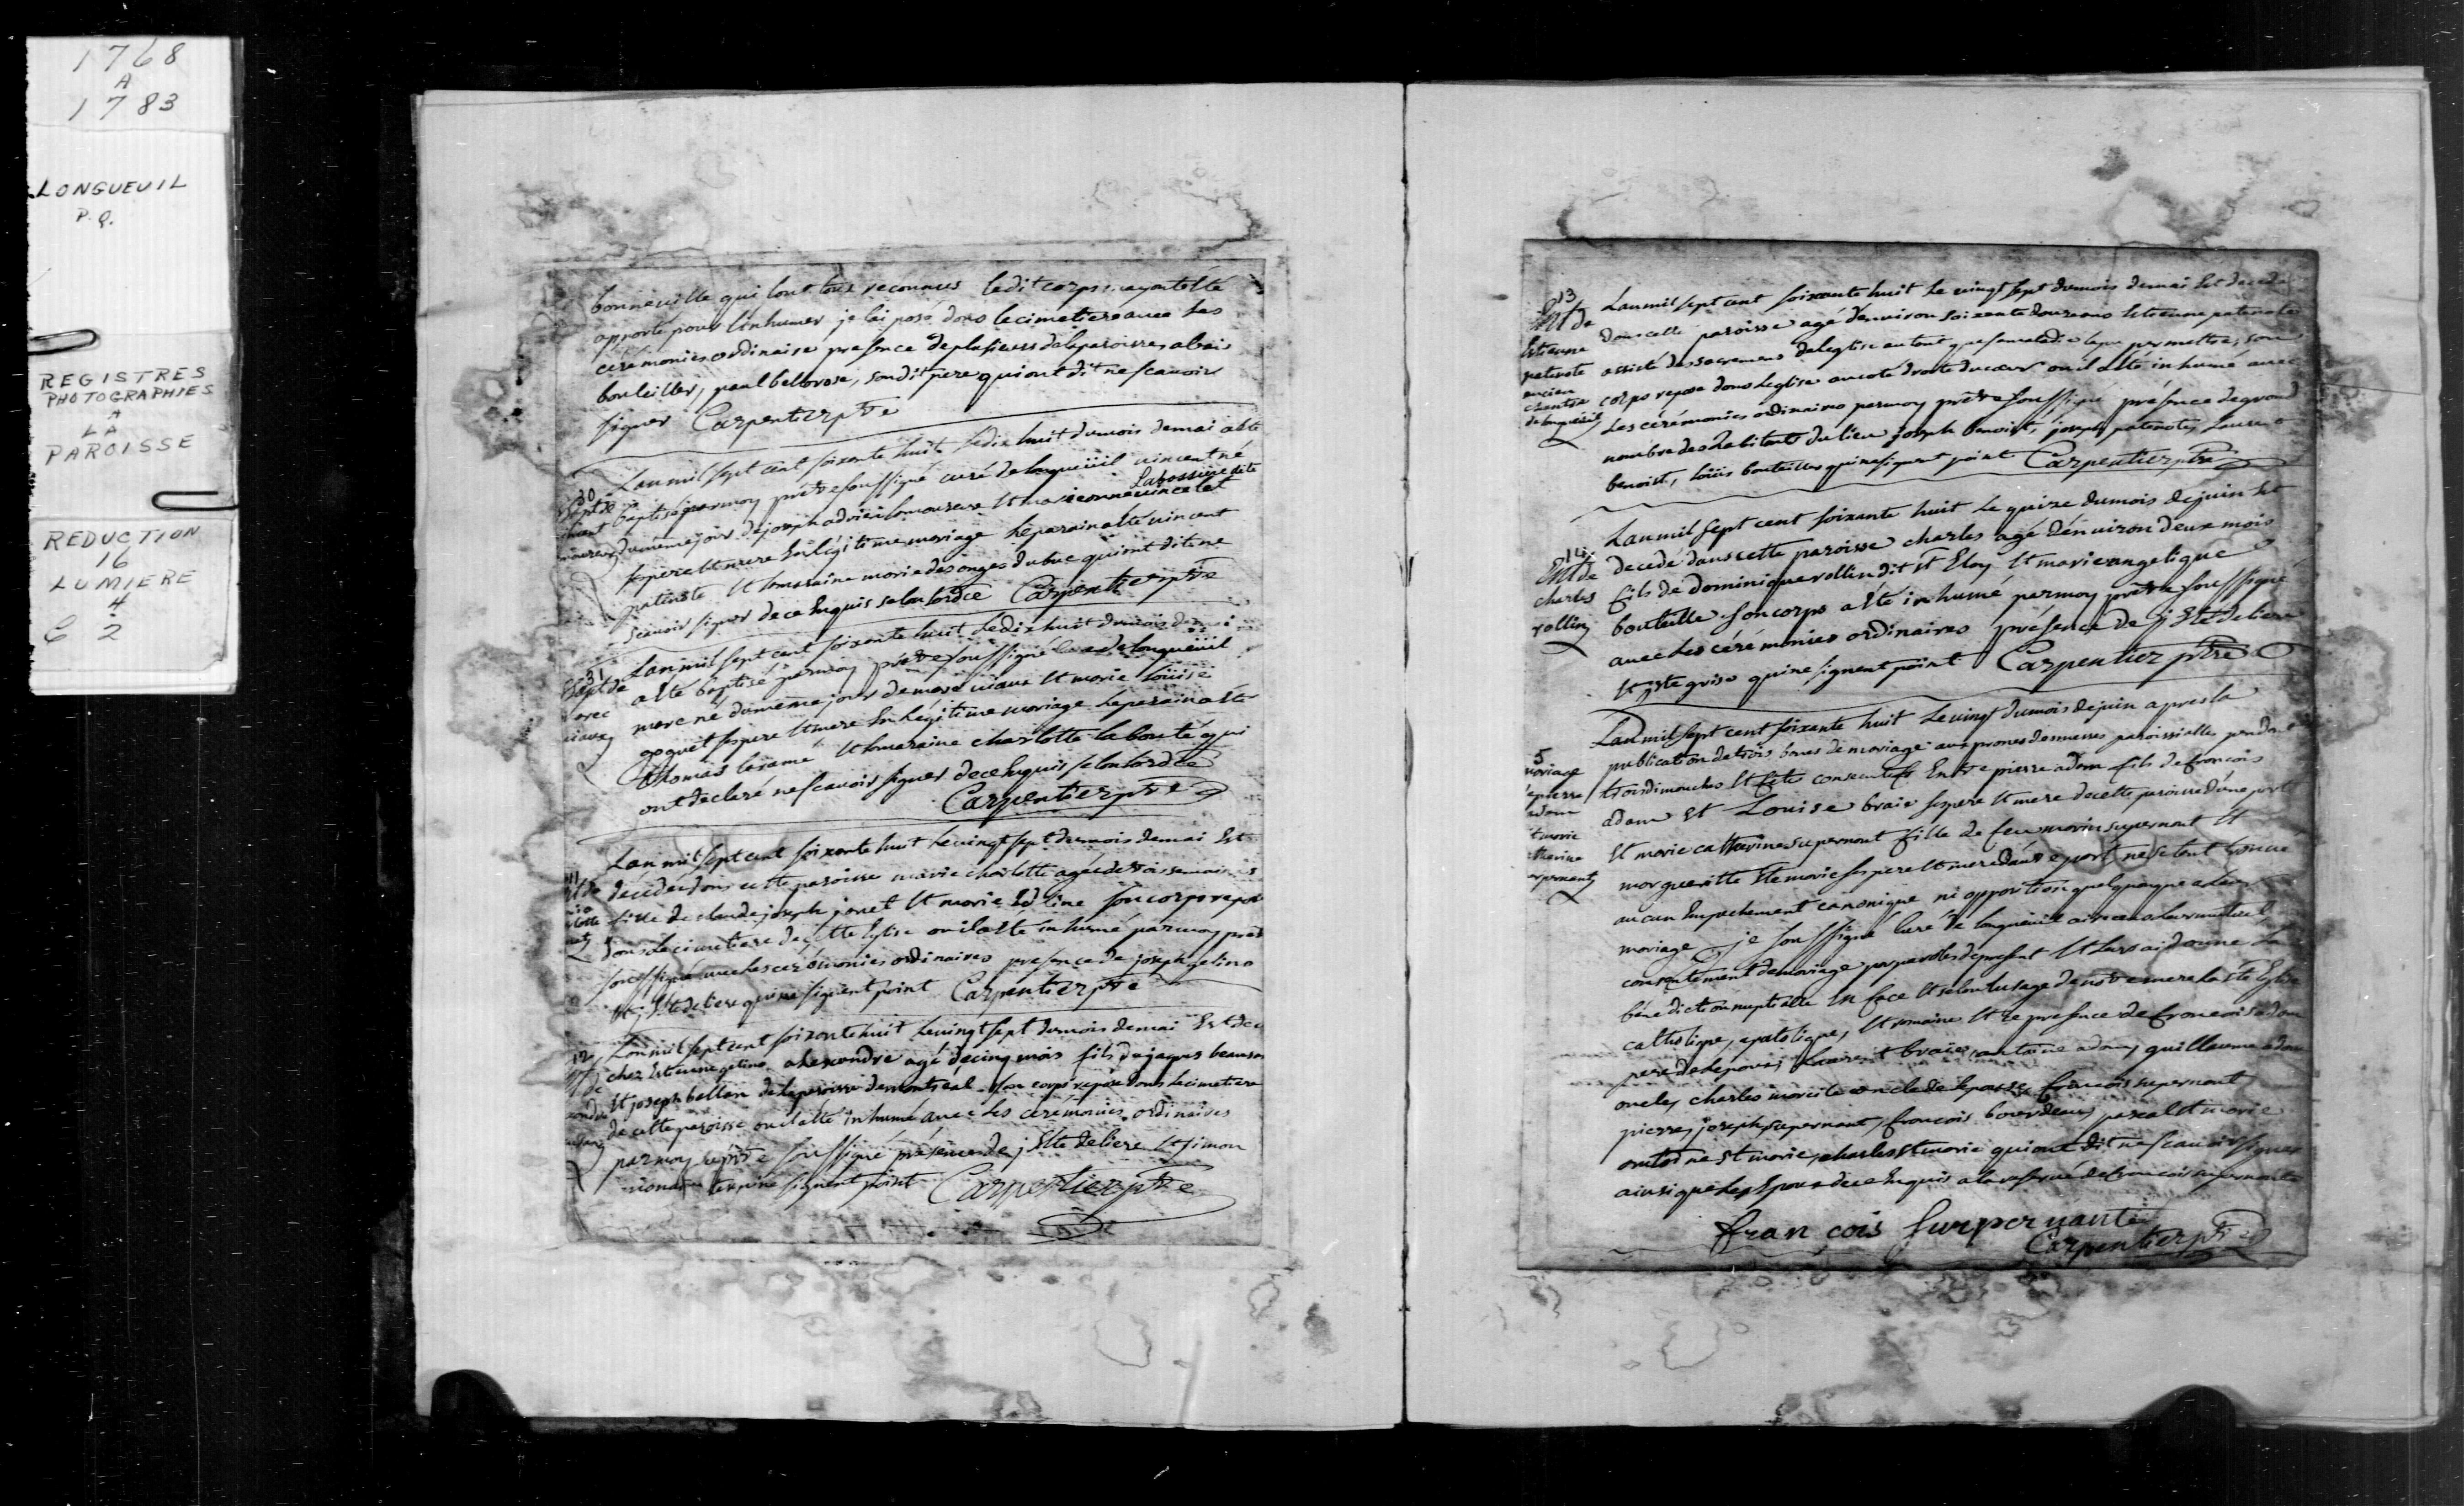 1768
A
1783
LONGUEUIL
P.Q.
REGISTRES
PHOTOGRAPHIÉS
A
LA
PAROISSE
REDUCTION
16
LUMIERE
4
2
bonneville qui lont tous reconnus ledit corps ayant été
apporté pour linhumer je lai posé dans le cimetiere avec les
cérémonies ordinaire presence de plusieurs de la paroisse
bouteiller, paul bellerose, sondit pere qui ont dit ne scavoir
signer Carpentier ptre
30
Lan mil sept cent soixante huit le dix huit du mois de mai a été
baptisé par moy prêtre soussigné curé de longueüil vincent né
du meme jour de joseph lamoureux et marie
ses pere et mere en légitime mariage le parain a été vincent
patenote et la maraine marie desanges dubuc qui ont dit ne
scavoir signer de ce enquis selon lordce Carpentier ptre
31
Lan mil sept cent soixante huit le dix huit du mois de mai
a été baptisé par moy prêtre soussigné curé de longueüil
marc né du meme jour de marc viaux et marie loüise
goguet ses pere et mere en légitime mariage le parain a été
thomas et la maraine charlotte qui
ont declaré ne scavoir signer de ce enquis selon lordce
Carpentier ptre
11
Lan mil sept cent soixante huit le vingt sept du mois de mai est
décédée dans cette paroisse marie charlotte agée de trois semaines
fille de claude joseph jonet et marie son corps repose
dans le cimetiere de cette Eglise ou il a été inhumé par moy prêt
soussigné avec les cérémonies ordinaires presence de joseph gelino
et j bte deliere qui ne signent point Carpentier ptre
12
Lan mil sept cent soixante huit le vingt sept du mois de mai Est
chez Estienne gelino alexandre agé de cinq mois fils de jaques
et joseph de la paroisse de montreal son corps repose dans le cimetiere
de cette paroisse ou il a été inhumé avec les cérémonies ordinaires
par moy ptre soussigné présence de j Bte deliere et simon
qui ne signent point Carpentier ptre
13
Ent de
Estienne
patenote
ancien
chantre
de longueüil
Lan mil sept cent soixante huit le vingt sept du mois de mai Est decedé
dans cette paroisse agé denviron soixante douze ans Estienne patenote
assisté des sacremens de leglise autant que sa maladie la pu permettre, son
corps repose dans leglise au coté droit du cœur ou il a été inhumé avec
les cérémonies ordinaires par moy prêtre soussigné présence de grand
nombre des habitants du lieu joseph benoist, joseph patenote, Laurent
benoist, loüis bouteiller qui ne signent point Carpentier ptre
14
Ent de
charles
rollin
Lan mil sept cent soixante huit le quinze du mois de juin Est
decedé dans cette paroisse charles agé denviron deux mois
fils de dominique rollin dit st Eloy et marie angelique
bouteille son corps a été inhumé par moy prêtre soussigné
avec les cérémonies ordinaires présence de j Bte deliere
et j Bte griso qui ne signent point Carpentier ptre
5
mariage
de pierre
adam
et marie
catherine
supernant
Lan mil sept cent soixante huit le vingt du mois de juin apres la
publication de trois bans de mariage aux prones des messes paroissialles pendant
trois dimanches et fêtes consecutifs Entre pierre adam fils de francois
adam et Louise braie ses pere et mere de cette paroisse dune part
et marie catherine supernant fille de feu marin supernant et
margueritte Ste marie ses pere et mere dautre part ne setant trouvé
aucun Empechement canonique ni opposition quelquonque audit
mariage je soussigné curé de longueuil ai receu leur mutuel
consentement de mariage par paroles de present et leurs ai donné la
bénédiction nuptialle en face et selon lusage de notre mere la Ste Eglise
catholique, apostolique, et romaine et ce presence de francois adam
pere de lepoux, Laurent braie, antoine adam, guillaume adam
oncles, charles marcile oncle de lepouse francois supernant
pierre, joseph supernant, francois bourdeau, pascal st marie
antoine st marie, charles st marie qui ont dit ne scavoir signer
ainsi que les Epoux de ce Enquis a la reserve de francois supernant
fran cois surpernant
Carpentier ptre